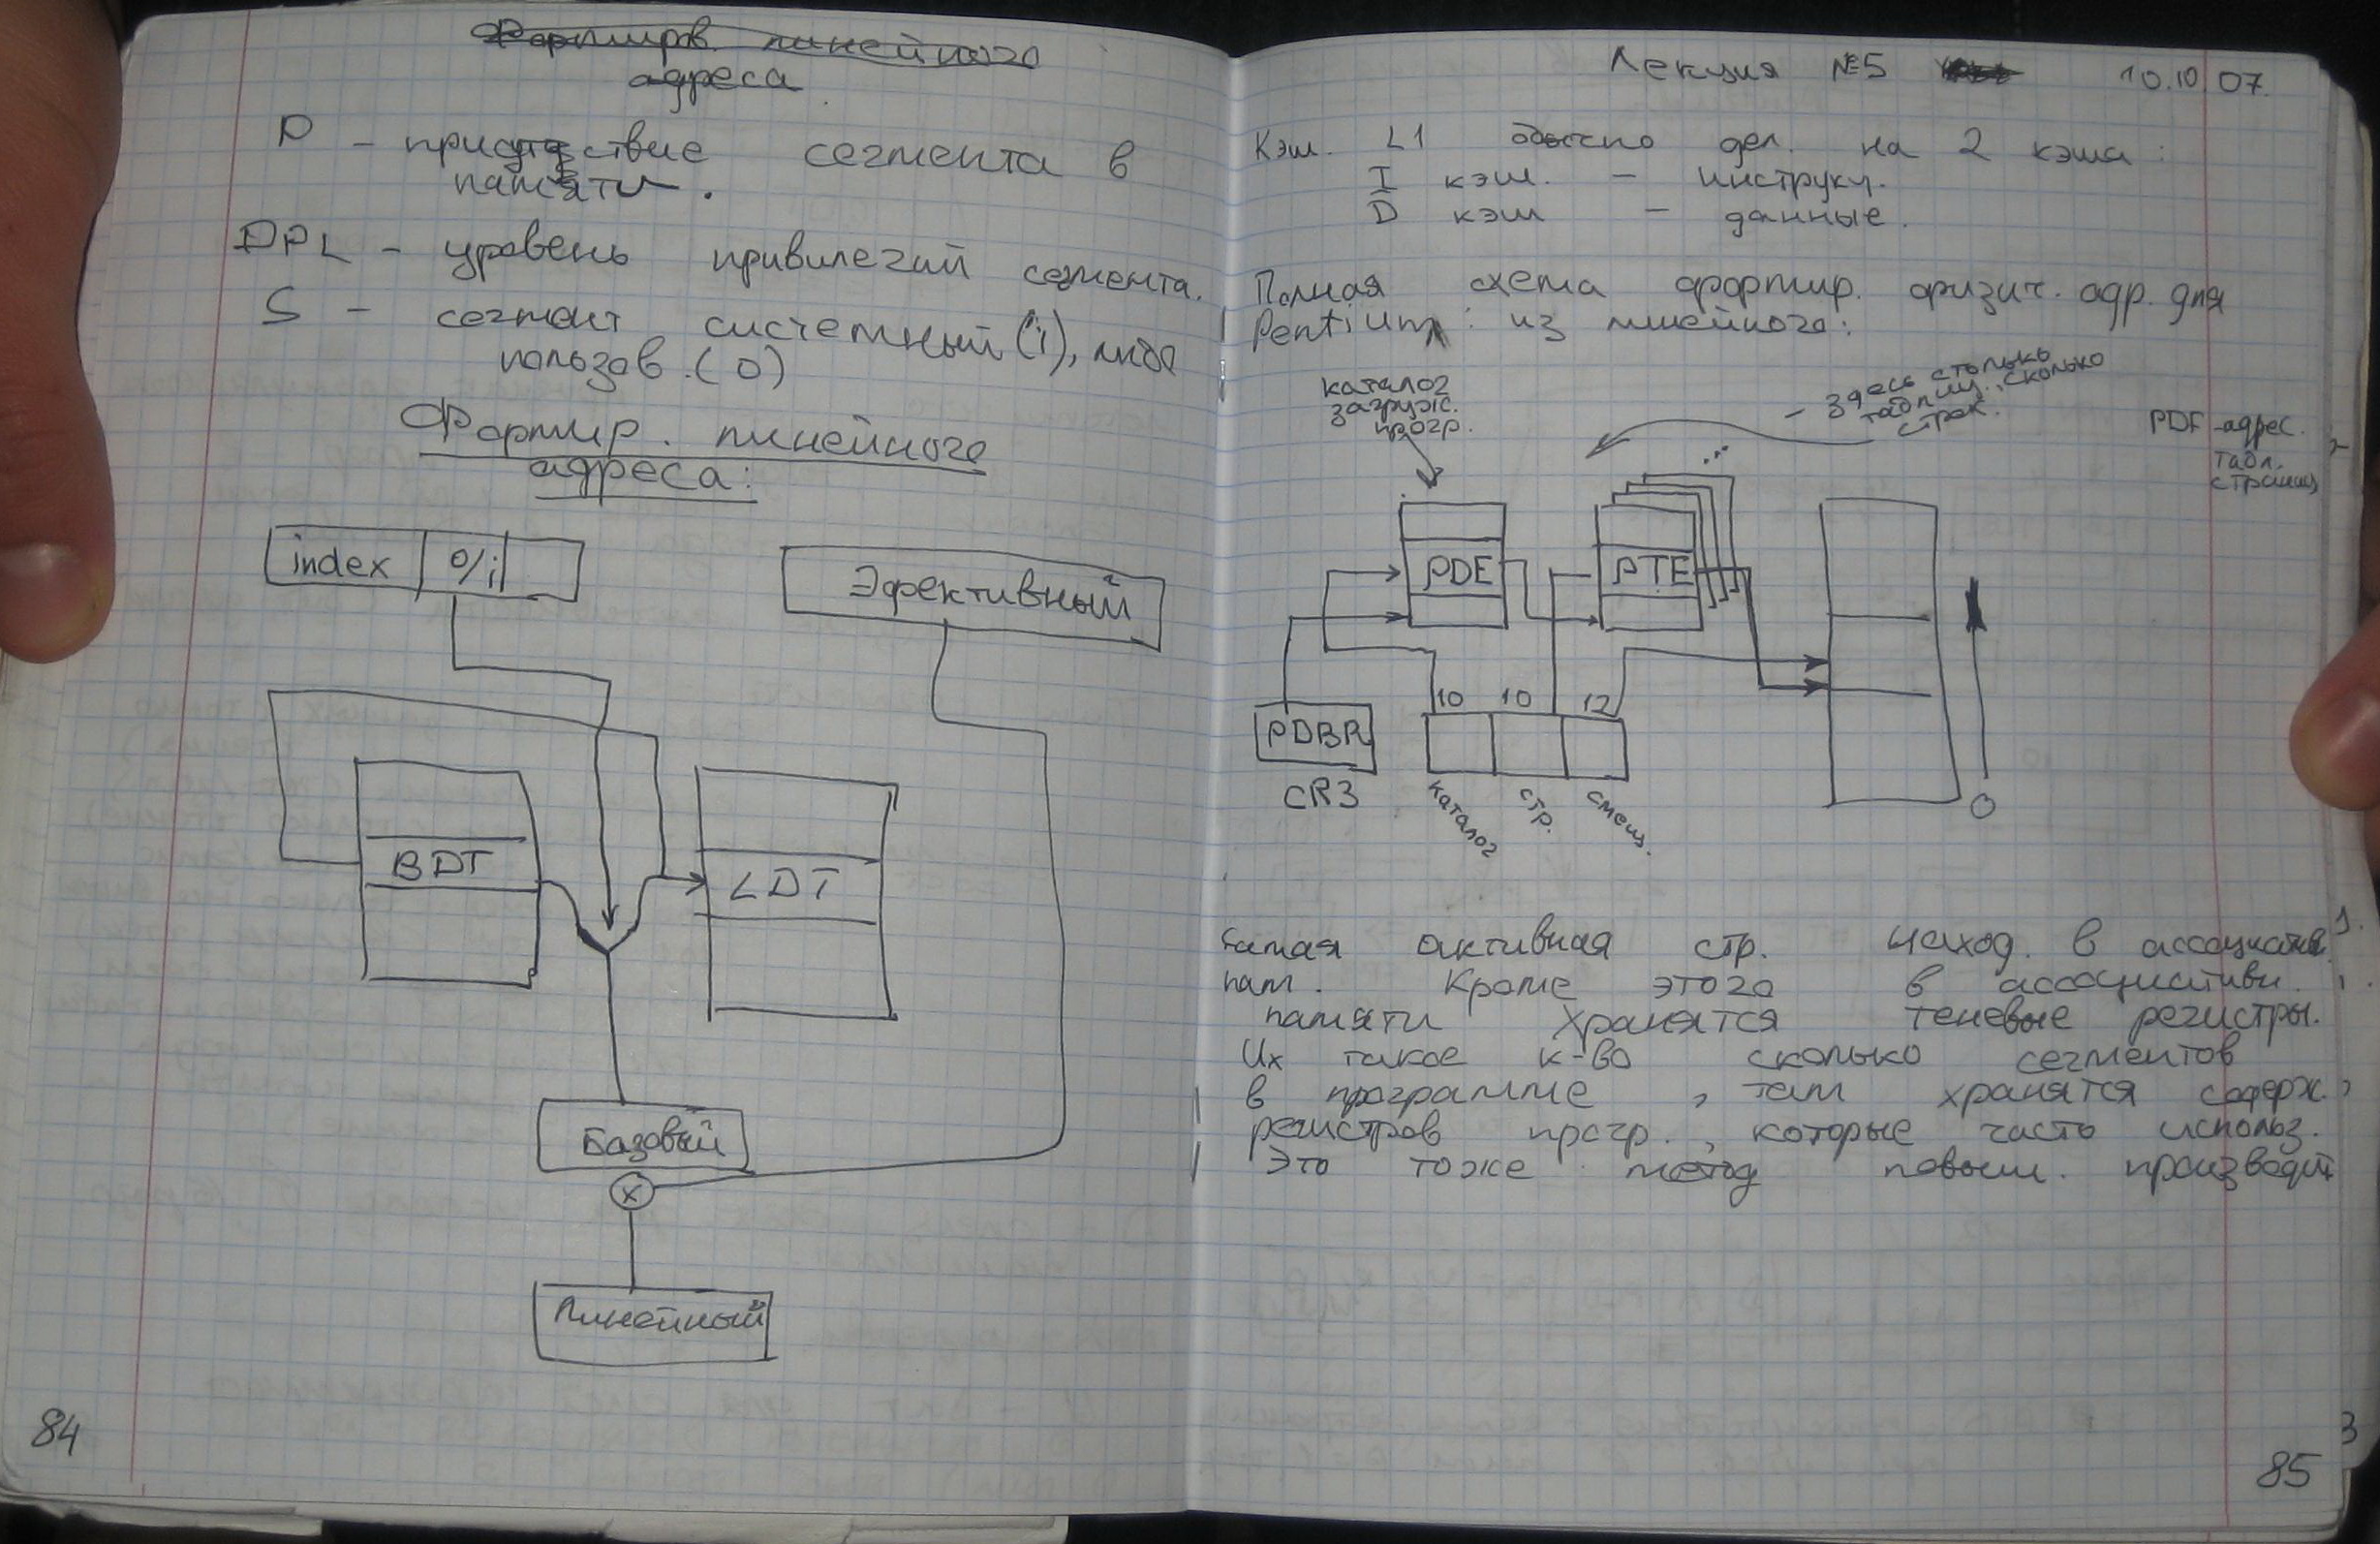 Формиров. линейного
адреса
P – присутствие сегмента в
памяти.
DPL – уровень привилегий сегмента.
S – сегмент системный (1), либо
пользов. (0)
Формир. линейного
адреса:
index 0/1
Эфективный
BDT
LDT
Базовый
x
Линейный
84
Лекция №5 10.10.07.
Кэш. L1 обычно дел. на 2 кэша:
I кэш. – инструкц.
D кэш – данные.
Полная схема формир. физич. адр. для
Pentium: из линейного:
каталог
загруж.
прогр.
– здесь столько
таблиц, сколько
строк.
PDF – адрес.
табл.
страниц
...
PDE
PTE
10 10 12
PDBR
CR3
каталог
стр.
смещ.
0
Самая активная стр. наход. в ассоциатив.
пам. Кроме этого в ассоциативн.
памяти хранятся теневые регистры.
Их такое к-во сколько сегментов
в программе, там хранятся содерж.
регистров прогр., которые часто использ.
Это тоже метод повыш. производит
85